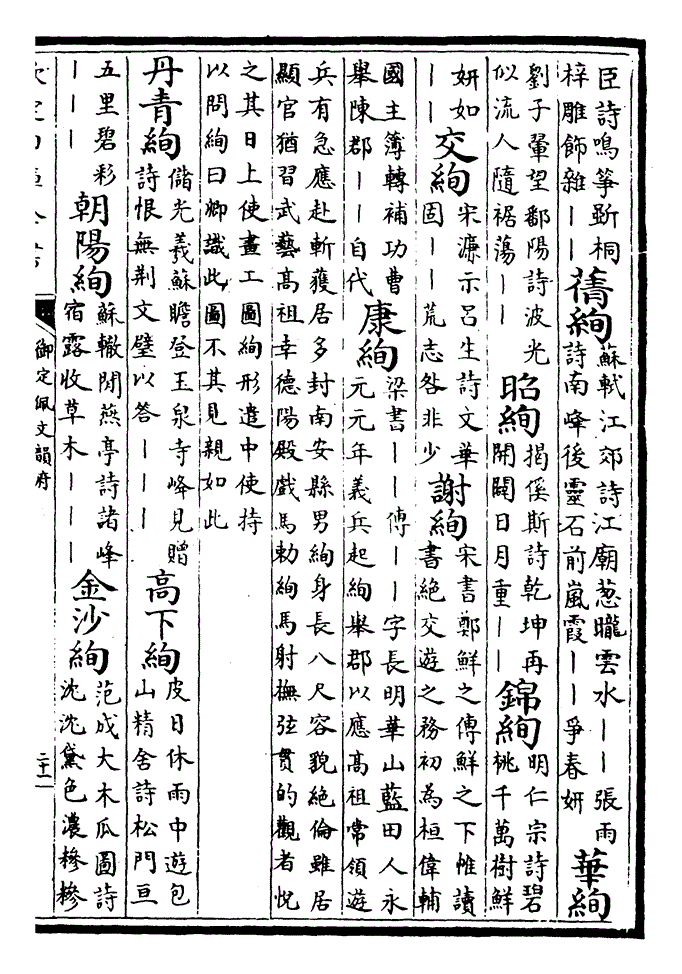 臣詩鳴箏斲桐
梓雕飾雜丨丨
蒨絢
蘇軾江郊詩江廟葱曨雲水丨丨張雨
詩南峰後靈石前嵐霞丨丨爭春妍
華絢
劉子翬望鄱陽詩波光
似流人隨裾蕩丨丨
昭絢
揭傒斯詩乾坤再
開闢日月重丨丨
錦絢
明仁宗詩碧
桃千萬樹鮮
妍如
丨丨
交絢
宋濂示呂生詩文華
固丨丨荒志咎非少
謝絢
宋書鄭鮮之傳鮮之下帷讀
書絶交遊之務初為桓偉輔
國主簿轉補功曹
舉陳郡丨丨自代
康絢
梁書丨丨傳丨丨字長明華山藍田人永
元元年義兵起絢舉郡以應高祖常領遊
兵有急應赴斬獲居多封南安縣男絢身長八尺容貌絶倫雖居
顯官猶習武藝高祖幸德陽殿戲馬勅絢馬射撫弦貫的觀者悅
之其日上使畫工圖絢形遣中使持
以問絢曰卿識此圖不其見親如此
丹青絢
儲光羲蘇瞻登玉泉寺峰見贈
詩恨無荆文璧以答丨丨丨
高下絢
皮日休雨中遊包
山精舍詩松門亘
五里碧彩
丨丨丨
朝陽絢
蘇轍閒燕亭詩諸峰
宿露收草木丨丨丨
金沙絢
范成大木瓜圖詩
沈沈黛色濃糝糝
御定佩文韻府
二十一